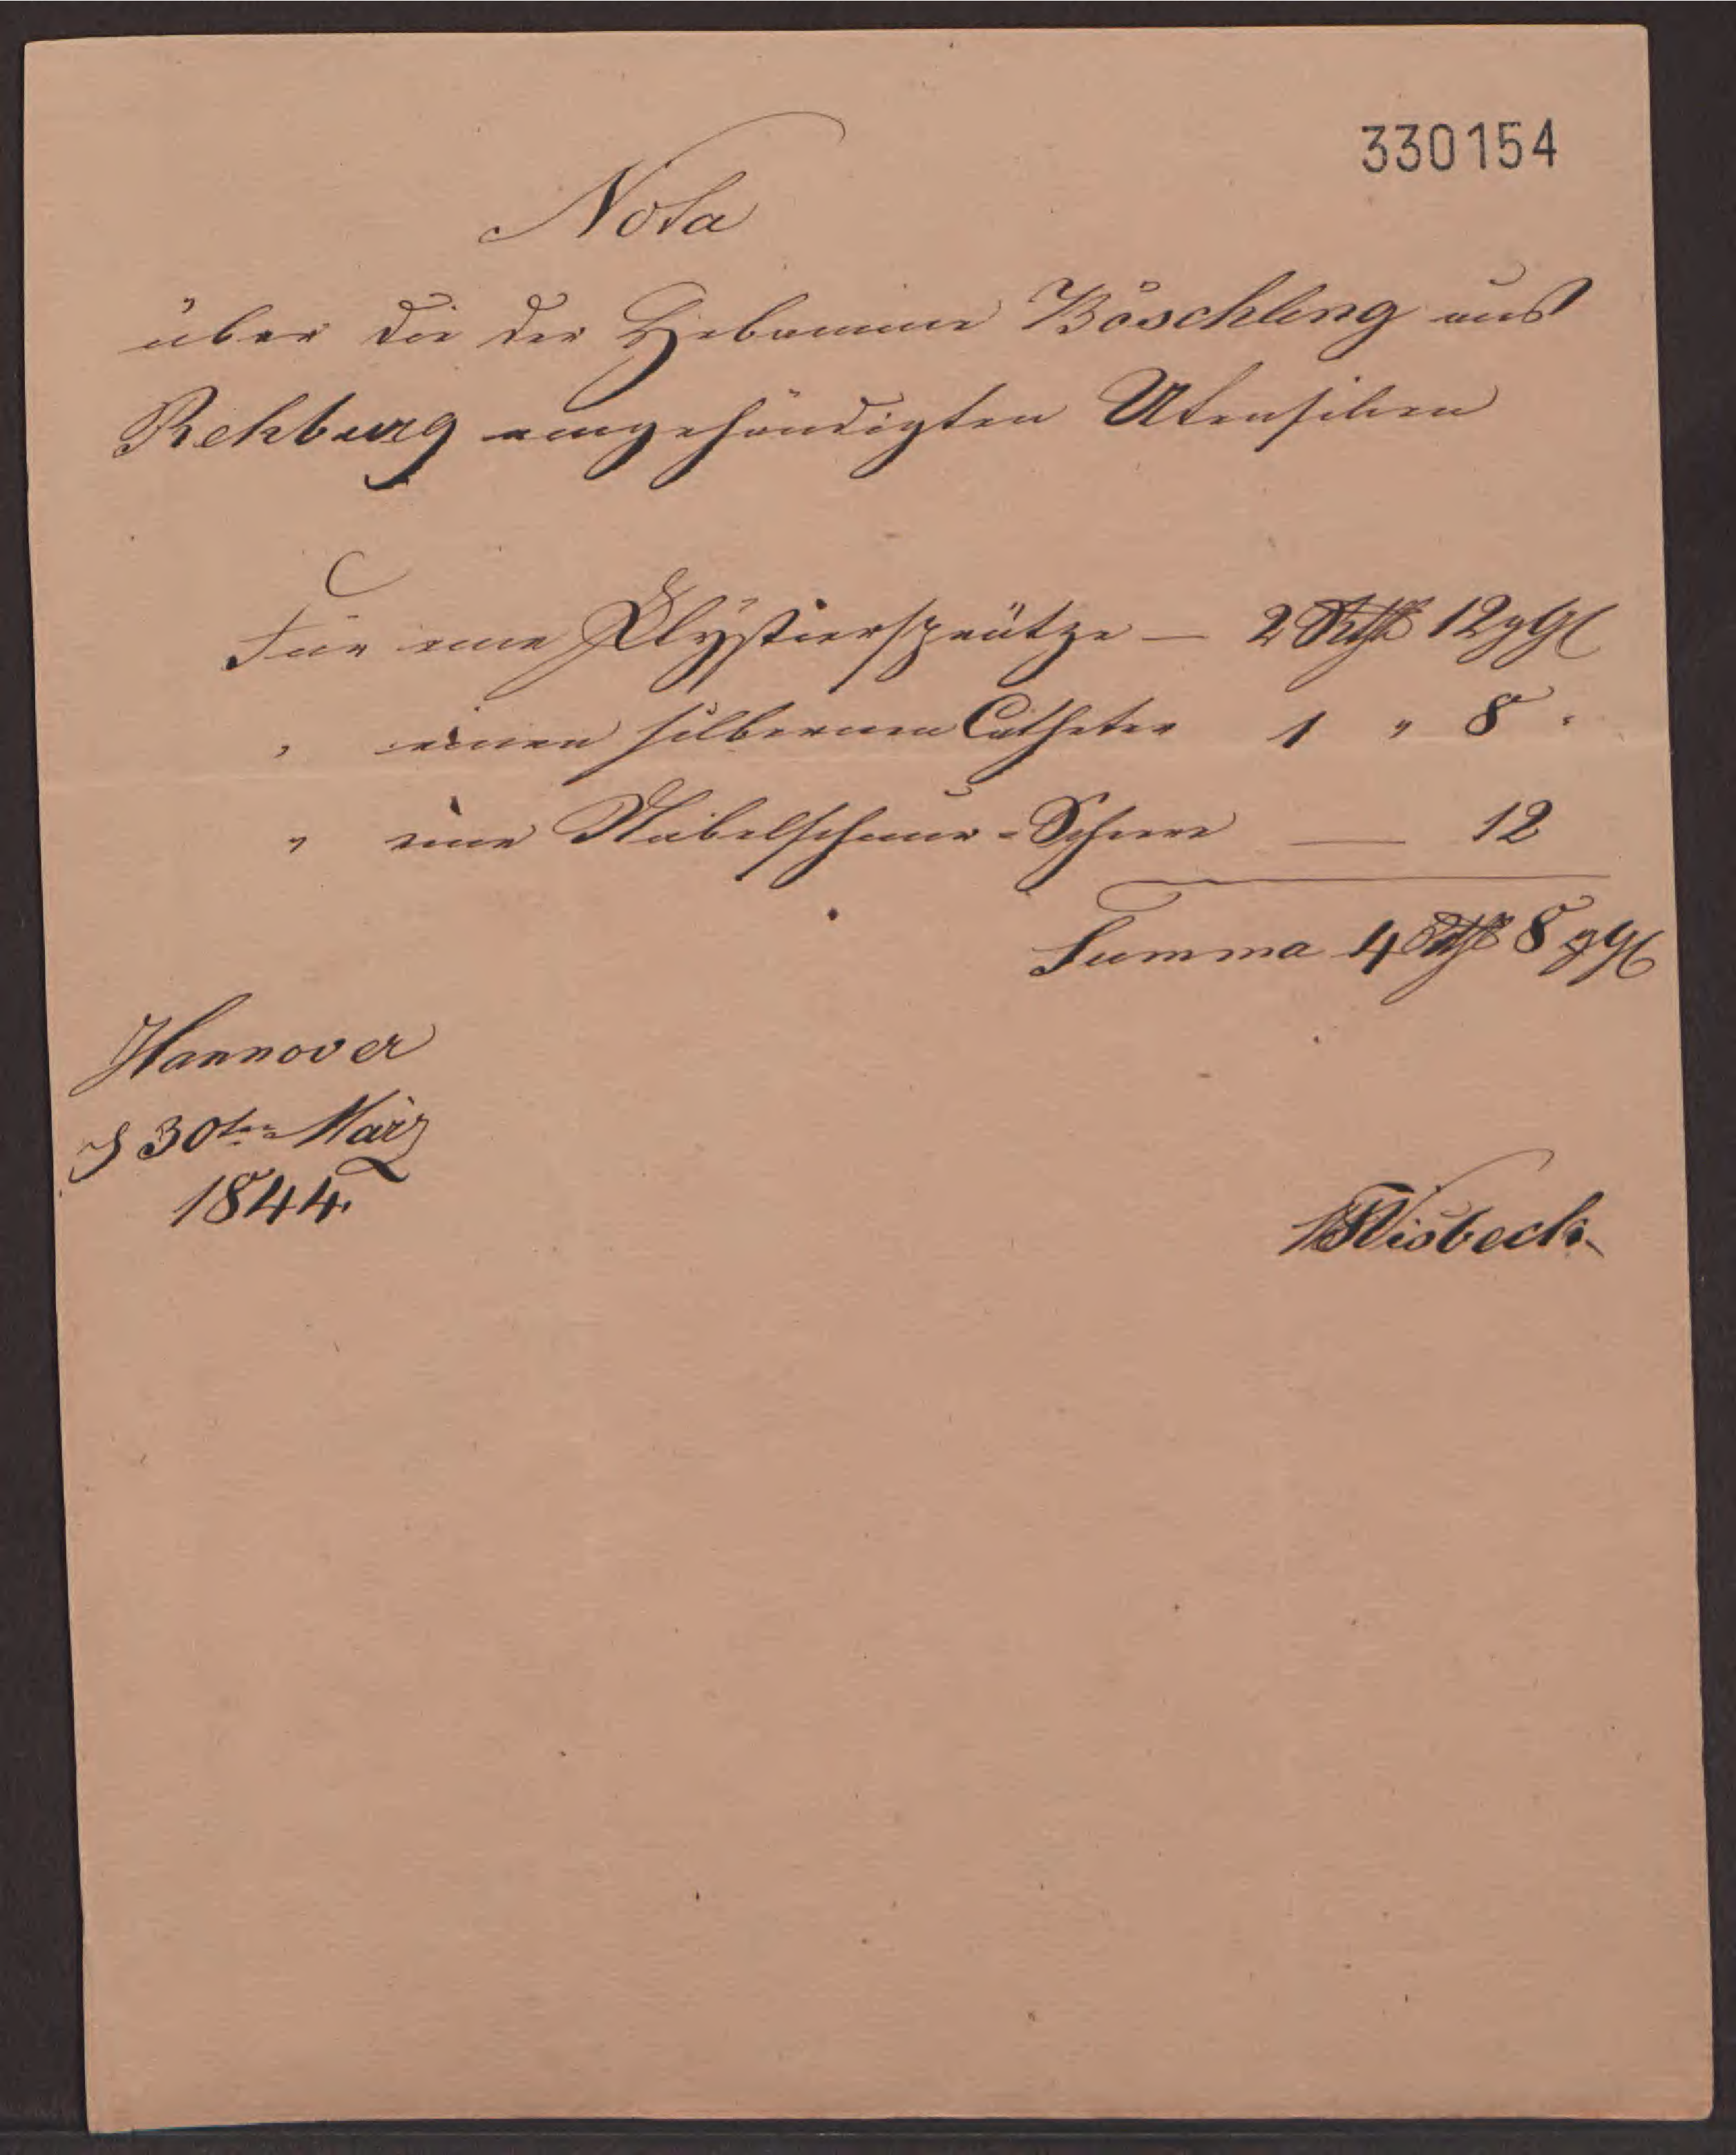 330154
Nota
über die der Hebamme Böschling aus
Rehburg eingehändigten Utensilien
Für eine Klystiersprütze — 2 Rthlr 12 ggl
" einen silbernen Catheter 1 " 8 "
" eine Nabelschnur-Scheere — 12
Summa 4 Rthlr 8 ggl
Hannover
d 30ten März
1844.
Wisbeck